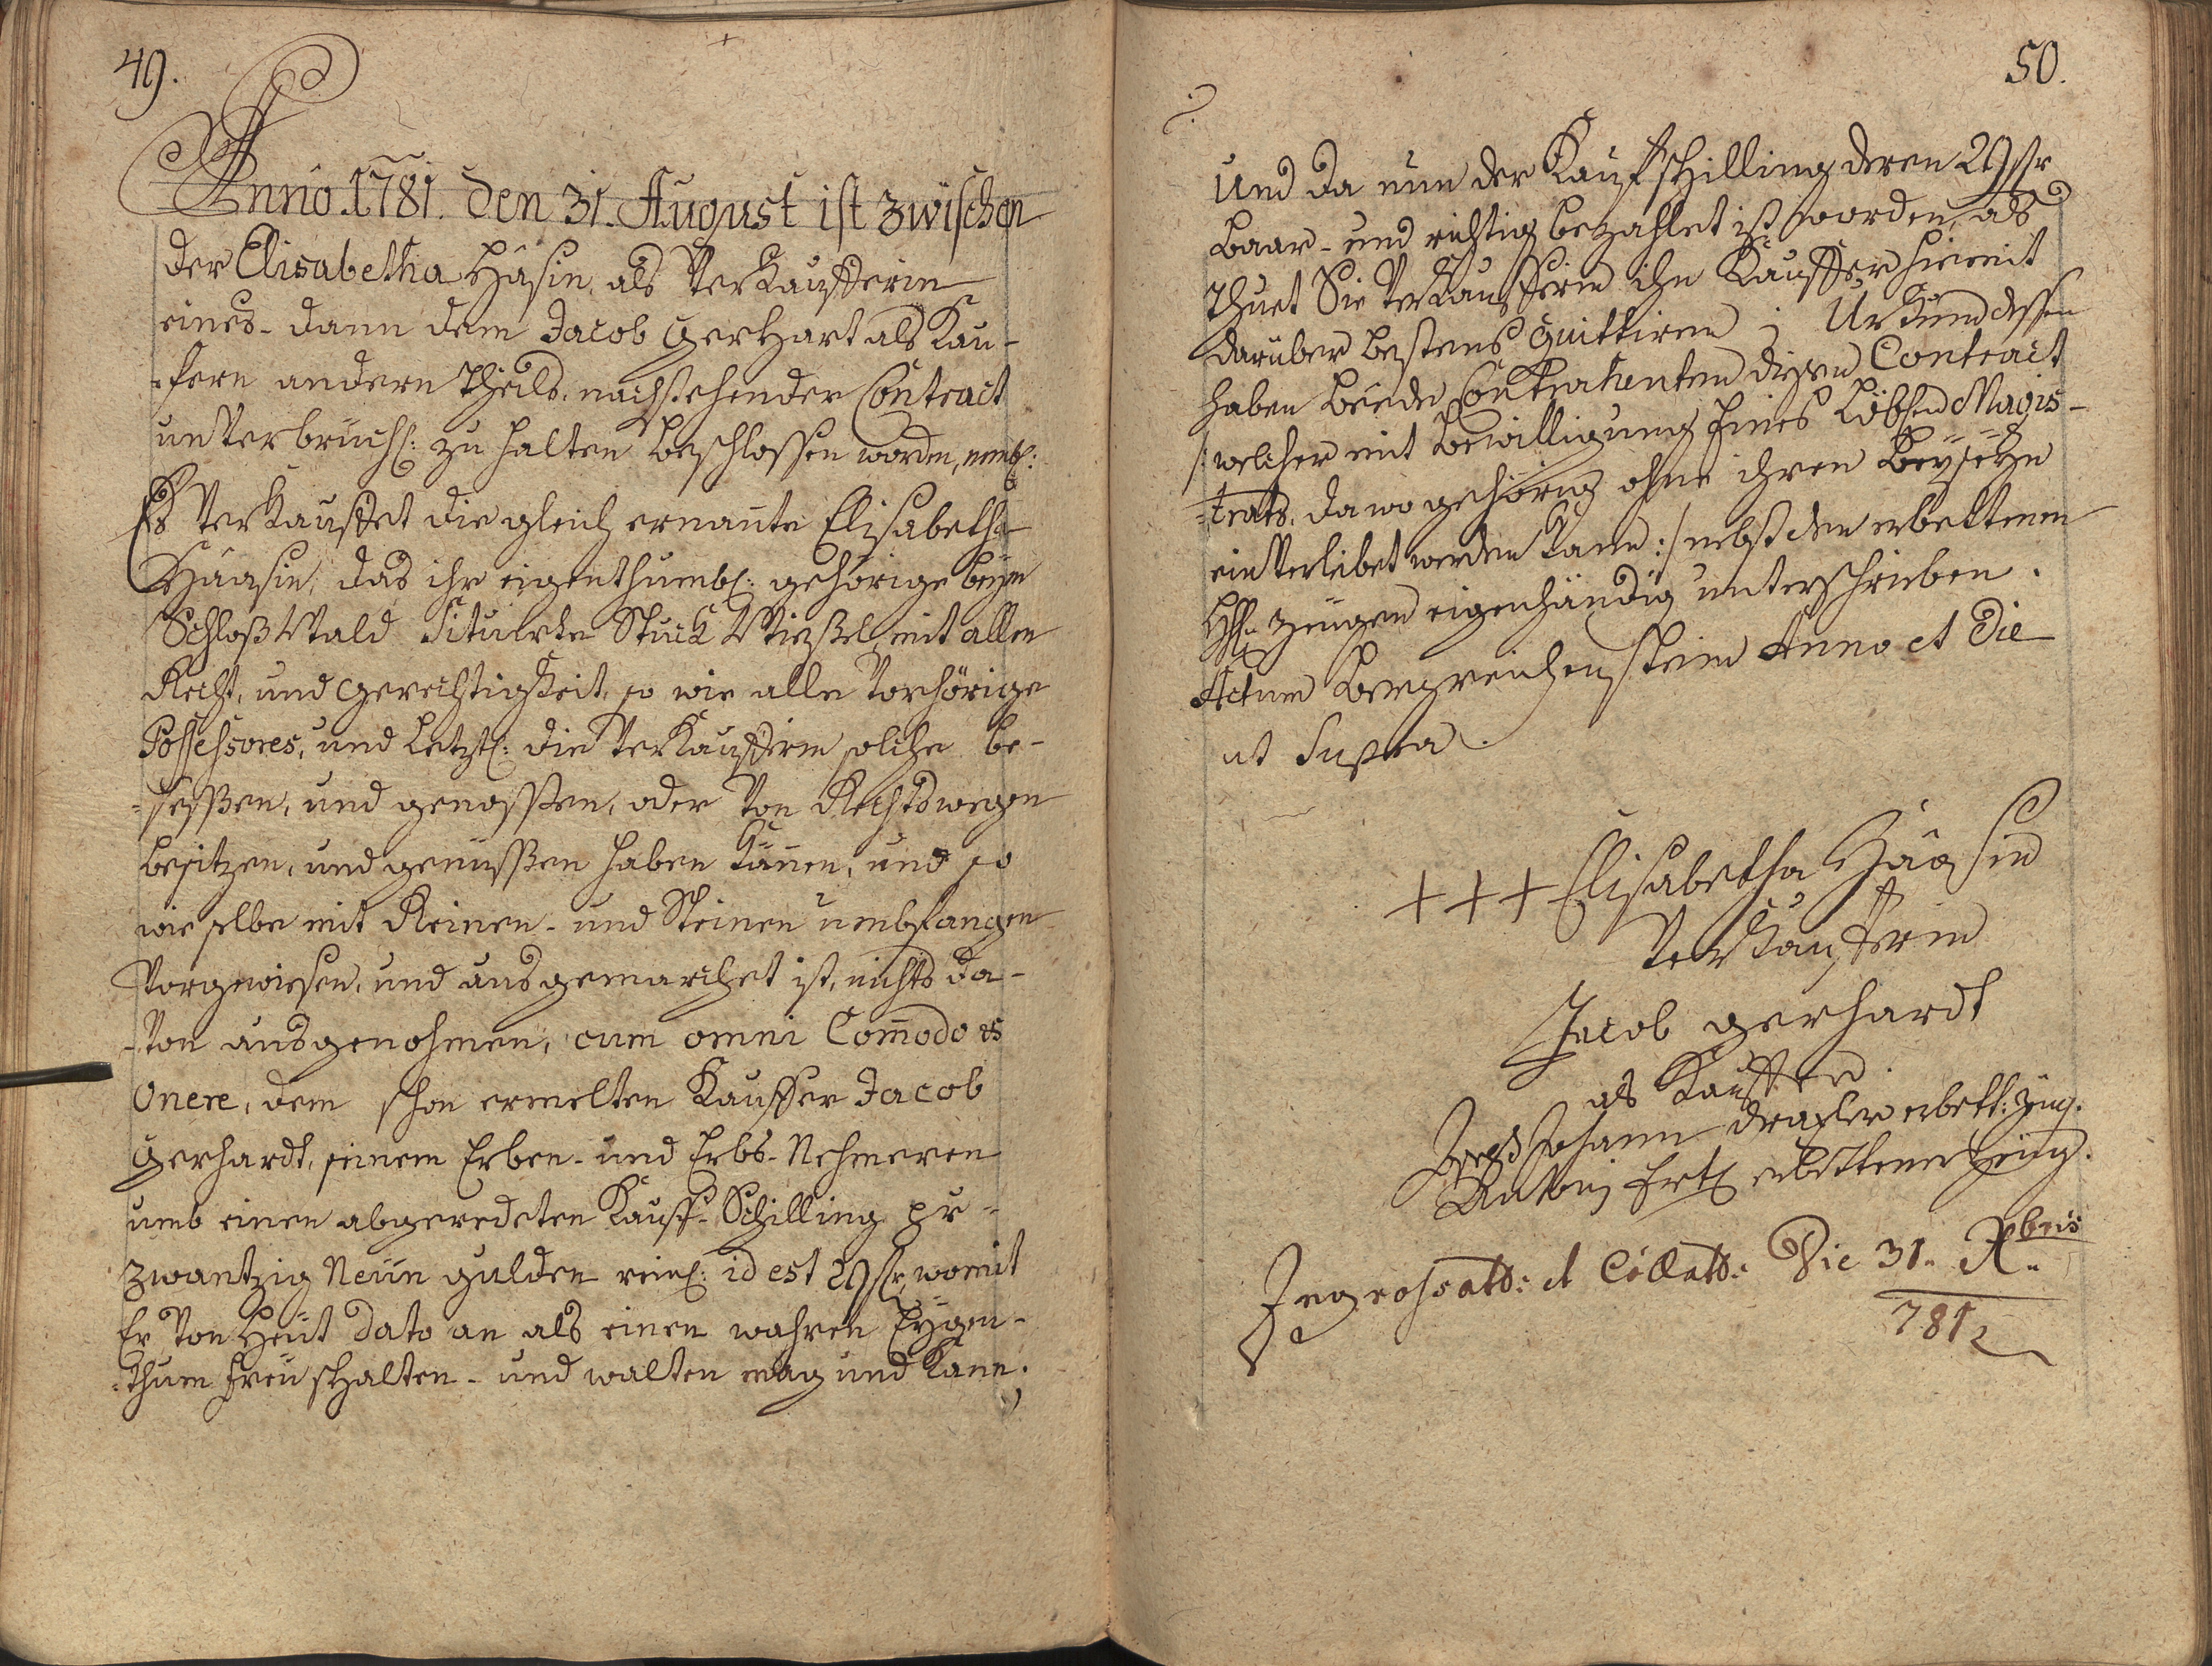 49.
Anno 1781. den 31. August ist zwischen
der Elisabetha Häsin, als Verkaufferin
eines- dann dem Jacob Gerhart als Kau-
-fern andern Theils, nachstehender Contract
unverbrüchl: zu halten beschlossen worden, nembl:
Es verkauffet die gleich ernañte Elisabetha
Häasin, das ihr eigenthumbl: gehörige beym
Schloß Wald Situirte Stuck Wießel, mit allen
Recht, und Gerechtigkeit, so wie alle vorhörige
Possessores, und letztl: die Verkaufferin solche be-
-sessßen, und genosßen, oder von Rechtswegen
besitzen, und genüsßen haben käñen, und so
wie selbe mit Reinen- und Steinen umbfangen
Vorgewiesen, und ausgemarchet ist, nichts da-
-von ausgenohmen, cum omni Com̄odo et
Onere, dem schon ermelten Kauffer Jacob
Gerhardt, seinem Erben- und Erbs-Nehmeren
umb einen abgeredeten Kauff-Schilling pr-
zwantzig Neün gulden reinl: id est 29 fr, womit
Er von Heüt dato an als einen wahren Eygen-
-thum freü schalten- und walten mag und kann.
50.
Und da nun der Kaufschilling deren 29 fr
baar- und richtig bezahlet ist worden, als
thuet Sie Verkaufferin ihn Kauffer hiemit
darüber bestens quittiren; Urkund dessen
haben beede Contrahenten diesen Contract
/: welcher mit Bewilligung Eines Löbl: Magis-
-trats, da wo gehörig ohne ihren Beyseyn
einverleibet werden kann :/ nebst den erbettenen
H. Zeugen eigenhändig unterschrieben.
Actum Bergreichenstein Anno et Die
ut Supra.
+++ Elisabetha Häasin
Verkaufferin
Jacob gerhardt
als Kauffer
Johann Draxler erbett: Zeug.
Antoni Ertl erbettener Zeug.
Ingrossatb: et Collatb: Die 31. Xbris
781